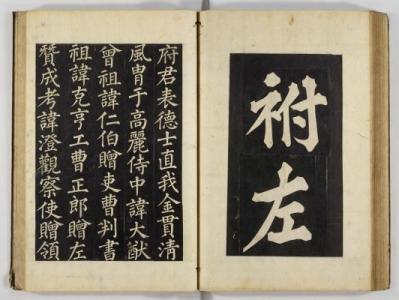 祔左
府君表德士直我金貫清
風胄于高麗侍中諱大猷
曾祖諱仁伯贈吏曹判書
祖諱克亨工曹正郎贈左
贊成考諱澄觀察使贈領